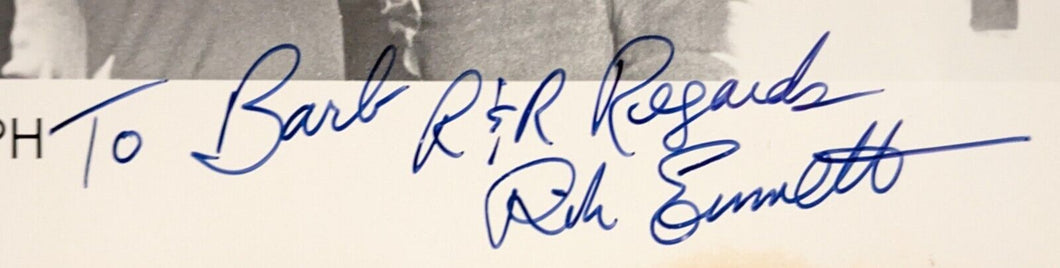 PH To Barb R&R Regards
Rik Emmett